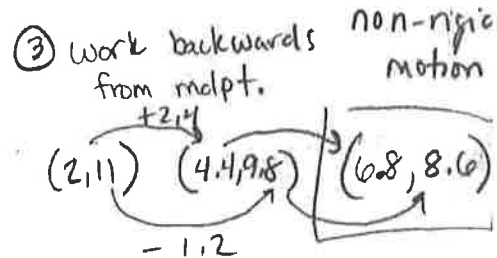 ③ work backwards
from mdpt.
non-rigid
motion
+2.4
(2,11) (4.4,9.8) (6.8, 8.6)
- 1.2